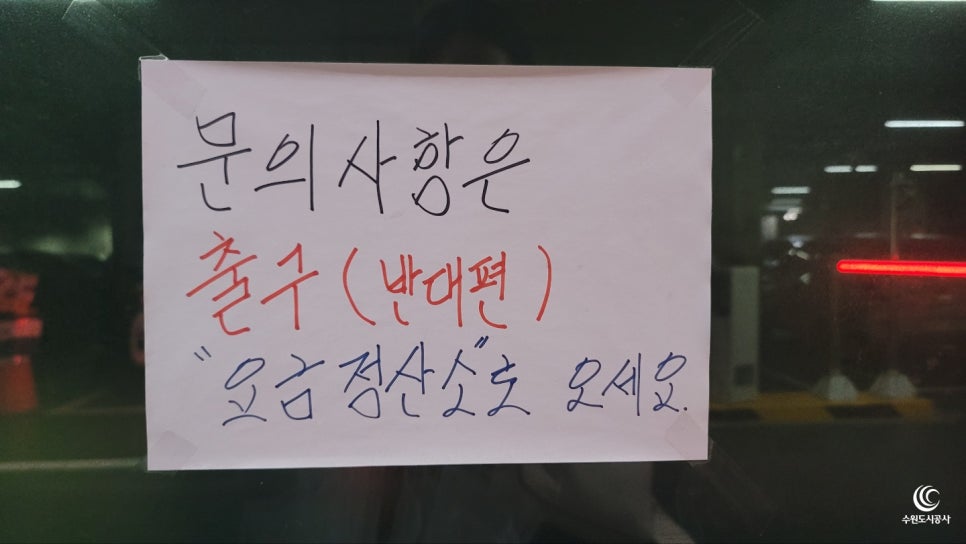 문의사항은
출구(반대편)
"요금정산소"로 오세요.
수원도시공사